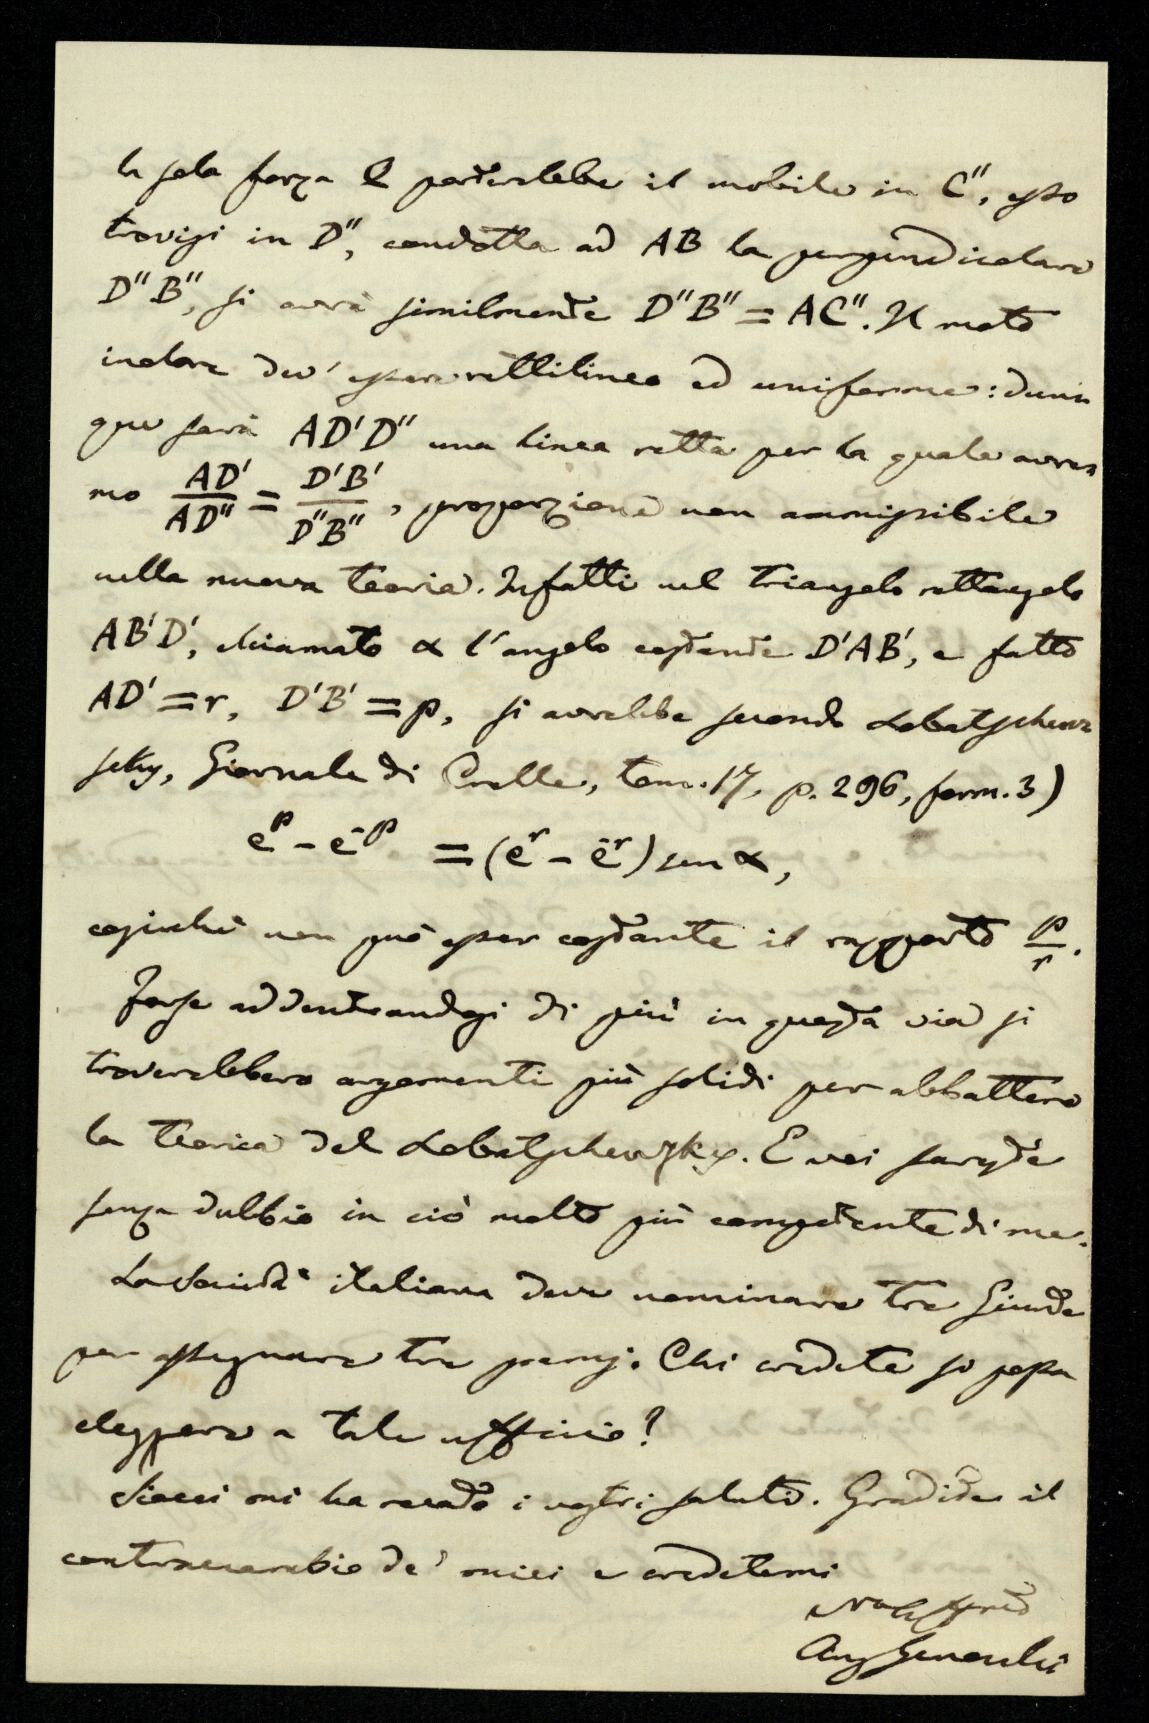 la sola forza Q porterebbe il mobile in C'', esso
trovisi in D'', condotta ad AB la perpendicolare
D''B'', si avrà similmente D''B'' = AC''. Il moto
inoltre dev' essere rettilineo ed uniforme: dun
que sarà AD'D'' una linea retta per la quale avrem
mo AD'/AD'' = D'B'/D''B'', proporzione non ammissibile
nella nuova teoria. Infatti nel triangolo rettangolo
AB'D', chiamato α l'angolo costante D'AB', e fatto
AD' = r, D'B' = p, si avrebbe secondo Lobatschew
sky, Giornale di Crelle, tom. 17, p. 296, form. 3)
e^p - e^-p = (e^r - e^-r) sen α,
cosicchè non può esser costante il rapporto p/r.
Forse addentrandosi di più in questa via si
troverebbero argomenti più solidi per abbattere
la teorica del Lobatschewsky. E voi sareste
senza dubbio in ciò molto più competente di me.
La Società italiana deve nominare tre Giunte
per assegnare tre premj. Chi credete si possa
eleggere a tale ufficio?
Siacci mi ha recato i vostri saluti. Gradite il
contraccambio de' miei e credetemi
Aug Genocchi